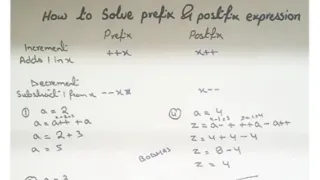 How to Solve prefix & postfix expression
Prefix Postfix
Increment ++x x++
Adds 1 in x
Decrement
Substract 1 from x --x x--
① a = 2
a = a++ + a
a = 2 + 3
a = 5
② a = 4
z = a-- + ++a - a++
z = 4 + 4 - 4
z = 8 - 4
z = 4
BODMAS